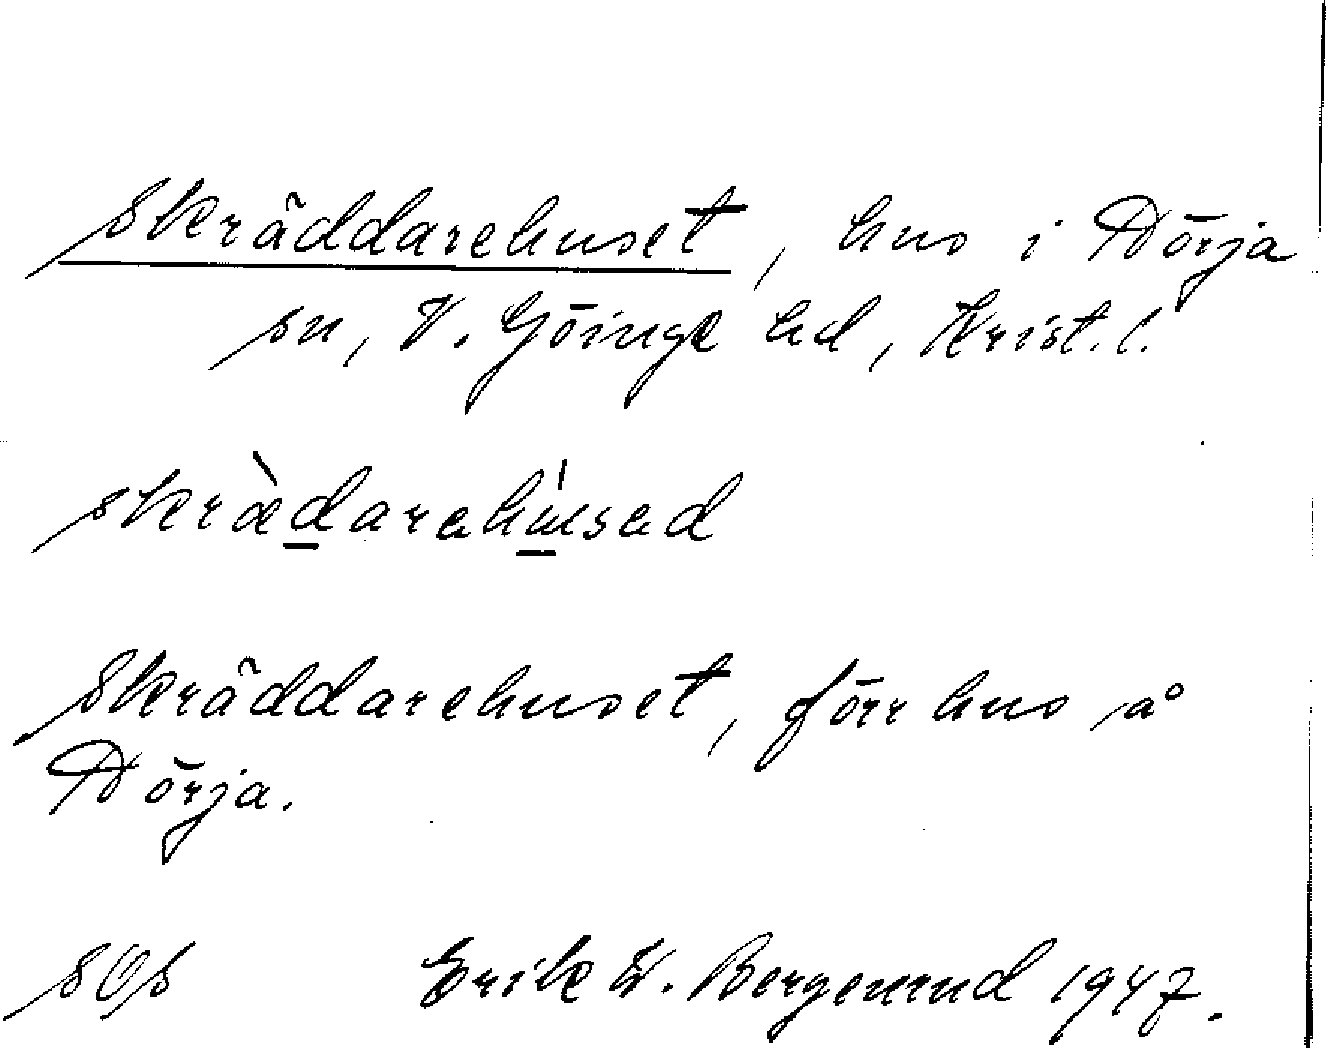 Skräddarehuset, hus i Dörja
sn, V. Göinge hd, Krist. l.
skræ̀darahúsad
Skräddarehuset, förr hus å
Dörja.
SOS Erik W. Bergenrud 1947.